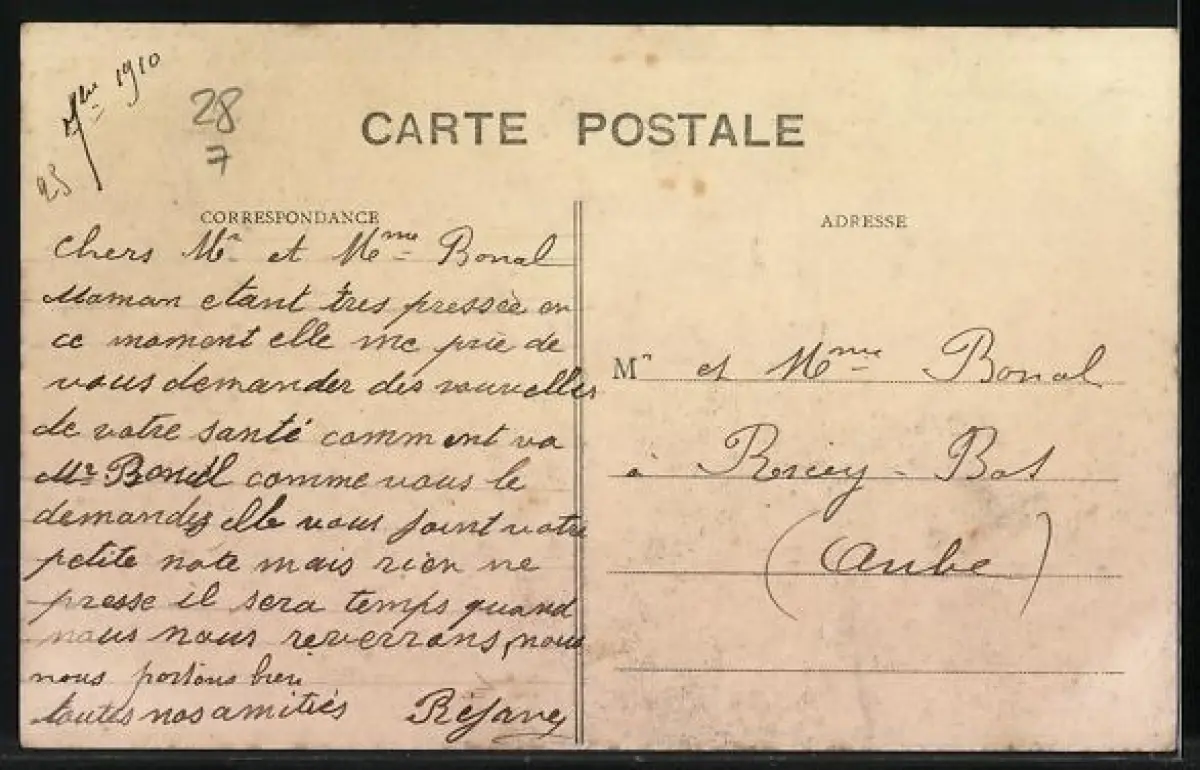 25 7bre 1910
28
7
CARTE POSTALE
CORRESPONDANCE
Chers Mr et Mme Bonal
Maman etant très pressée en
ce moment elle me prie de
vous demander des nouvelles
de votre santé comment va
Mr Bonal comme vous le
demandez elle vous joint votre
petite note mais rien ne
presse il sera temps quand
nous nous reverrons, nous
nous portons bien
toutes nos amitiés Réjane
ADRESSE
Mr et Mme Bonal
à Ricey-Bas
(Aube)